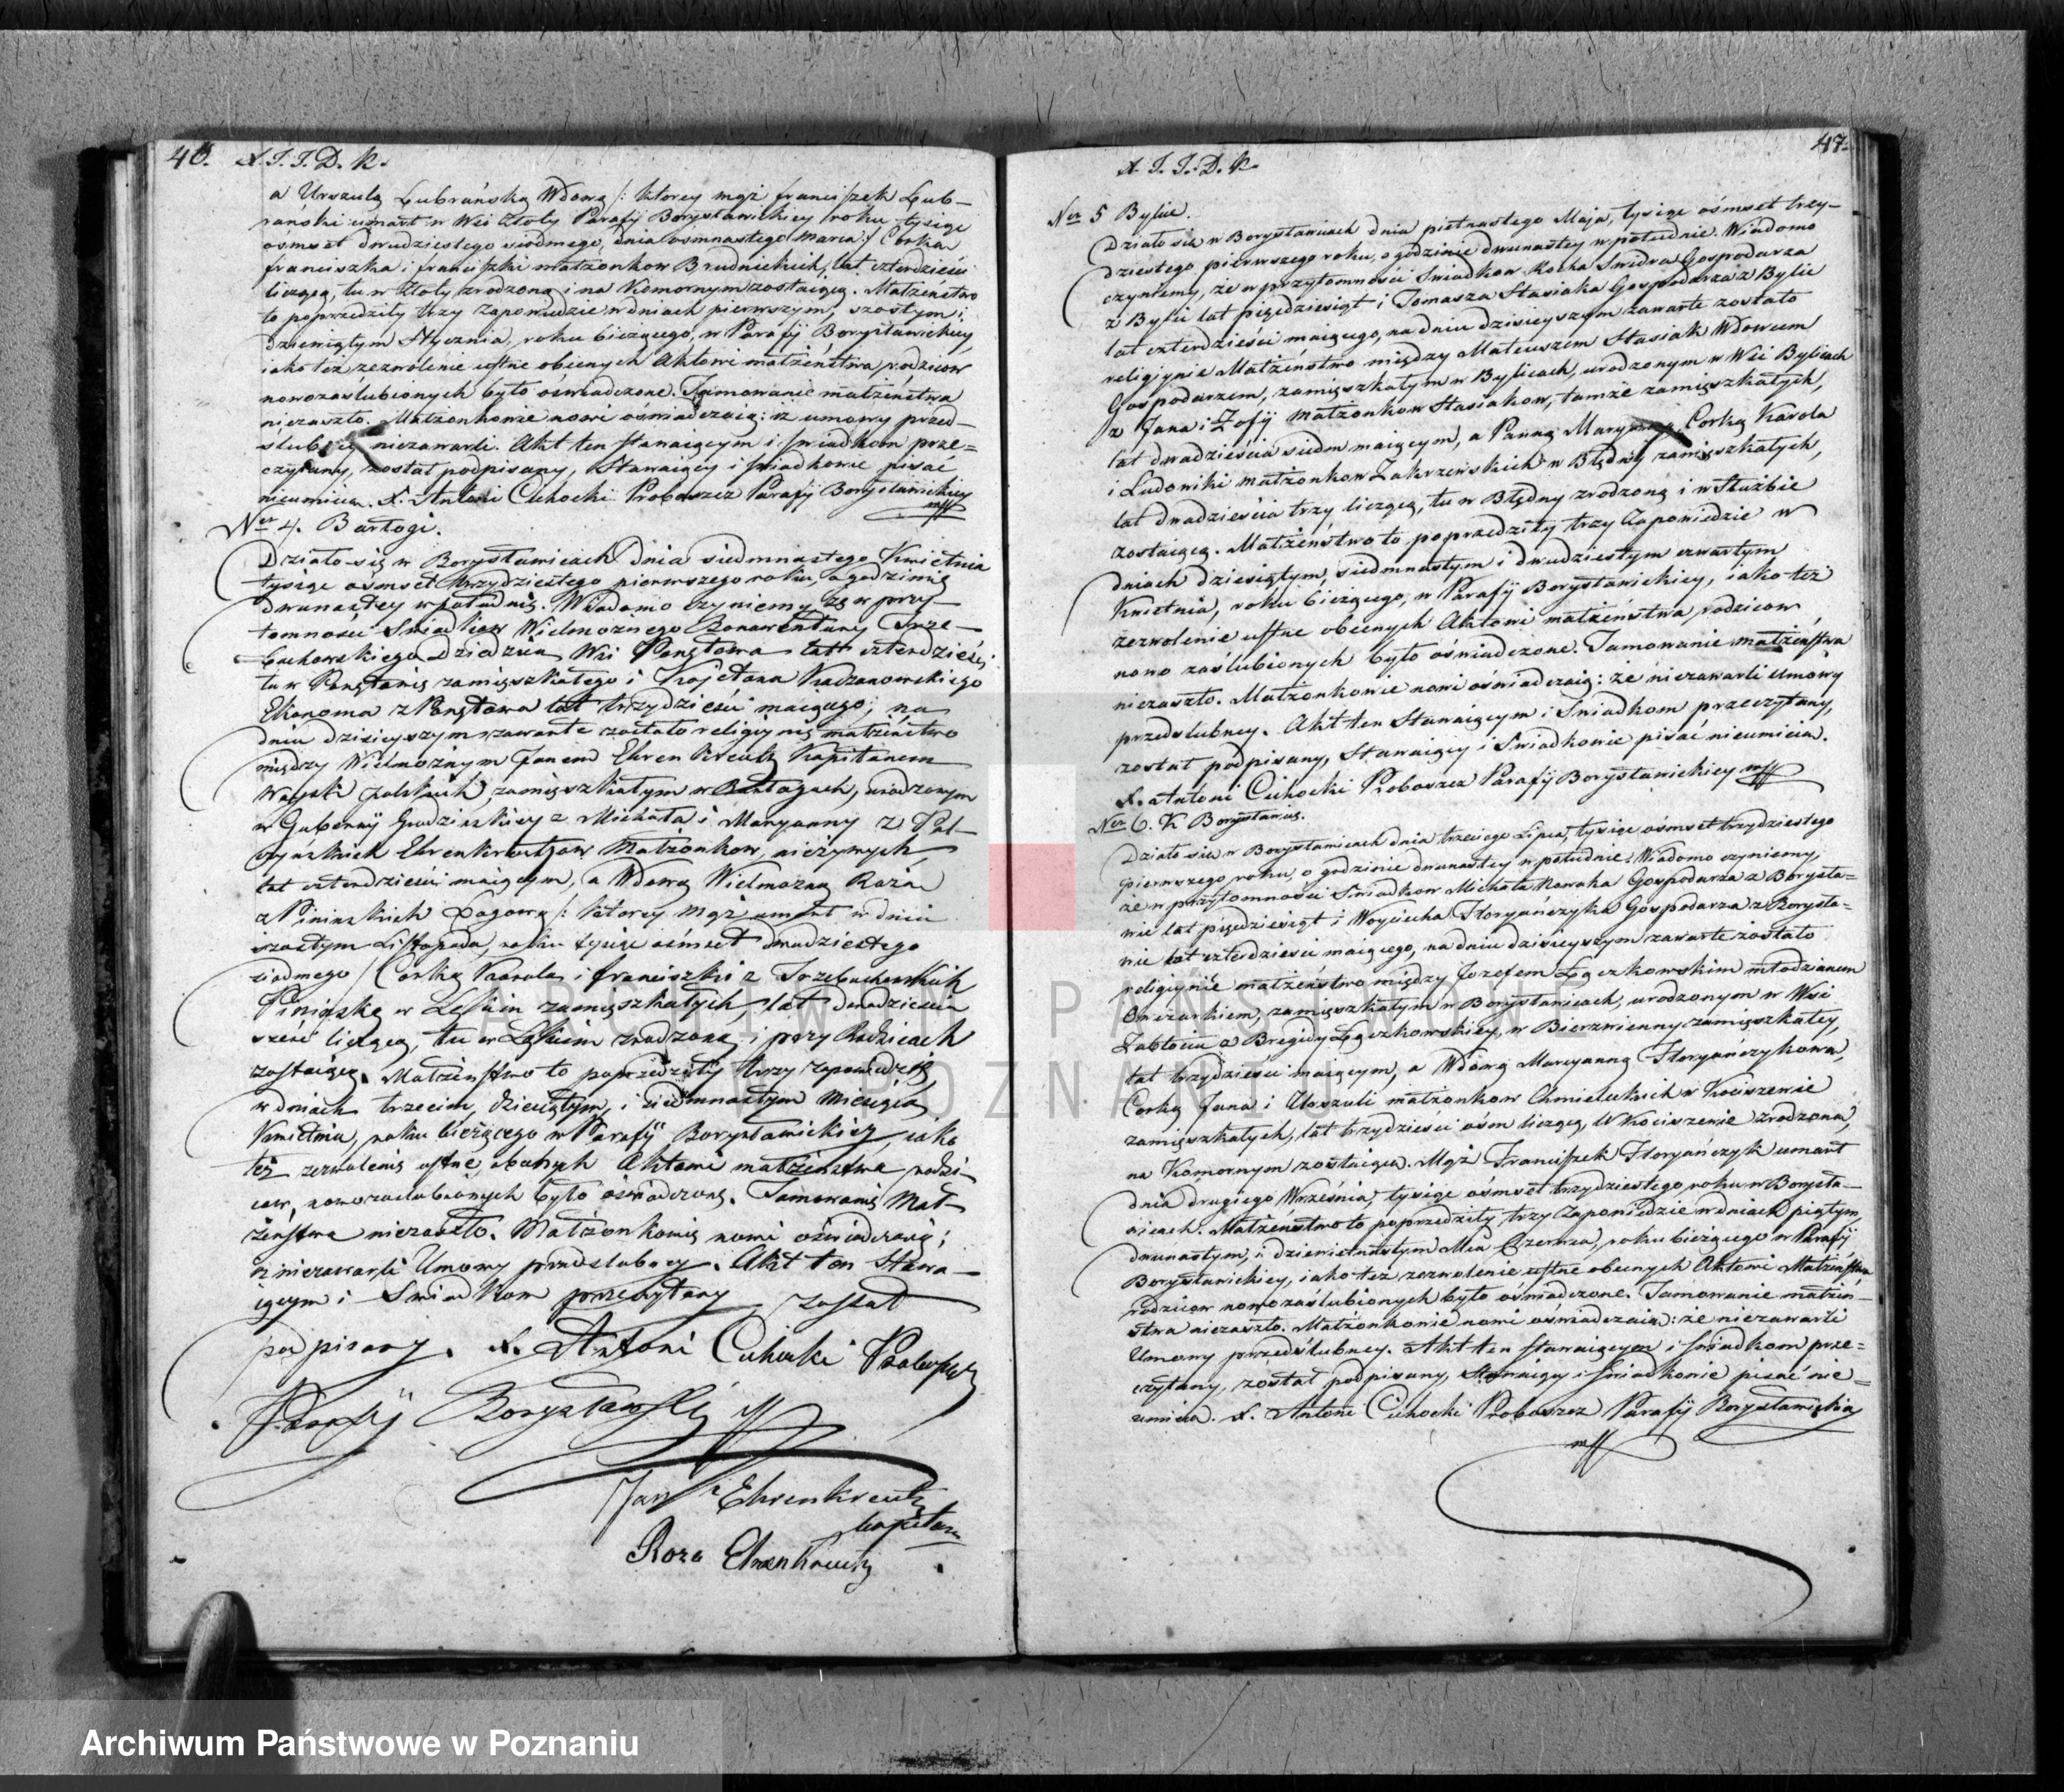 46. A. I. I. D. K.
a Urszulą Lubrańską Wdową /: ktorey mąż franciszek Lub-
rański umarł w Wsi Złoty Parafij Borysławickiey roku tysiąc
ośmset dwudziestego siodmego, dnia osmnastego marca :/ Corką
franciszka i franciszki małżonkow Brudnickich, lat czterdzieści
liczącą, tu w Złoty zrodzoną i na Komornym zostaiącą. Małżeństwo
to poprzedziły trzy Zapowiedzie w dniach pierwszym, szostym i
dziewiątym Stycznia, roku bieżącego, w Parafij Borysławickiey
iako też zezwolenie ustne obecnych Aktowi małżeństwa rodzicow
nowozaślubionych było oświadczone. Tamowanie małżeństwa
niezaszło. Małżonkowie nowi oświadczaią: iż umowy przed-
ślubney niezawarli. Akt ten stawaiącym i świadkom prze=
czytany, został podpisany, Stawaiący i świadkowie pisać
nieumieią. X. Antoni Cichocki Proboszcz Parafij Borysławickiey
Ner 4. Bartogi.
Działo się w Borysławicach Dnia siedmnastego Kwietnia
tysiąc ośmset trzydziestego pierwszego roku, o godzinie
dwunastey w południe. Wiadomo czyniemy, że w przy-
tomności Świadkow Wielmożnego Bonawentury Trze-
buchowskiego Dziedzica Wsi Ponętowa lat czterdzieści
tu w Ponętowie zamieszkałego i Kajetana Kadzanowskiego
Ekonoma z Ponętowa lat trzydzieści maiącego; na
dniu dzisieyszym zawarte zostało religiyne małżeństwo
między Wielmożnym Janem Ehrenkreutz Kapitanem
Woysk polskich, zamieszkałym w Bartogach, urodzonym
w Gubernij Grodzieńskiey z Michała i Maryanny z Pal-
czyńskich Ehrenkreutzow Małżonkow, nieżywych
lat czterdzieści maiącym, a Wdową Wielmożną Rożą
z Pinińskich Łagową /: ktorey Mąż umarł w dniu
szostym Listopada, roku tysiąc ośmset dwudziestego
siodmego :/ Corką Karola i franciszki z Trzebuchowskich
Pinińską w Łęskim zamieszkałych, lat dwadzieścia
sześć liczącą, tu w Łęskim zrodzoną i przy Rodzicach
zostaiącą. Małżeństwo to poprzedziły trzy zapowiedzie
w dniach trzecim, dziesiątym, i siedmnastym Miesiąca
Kwietnia, roku bieżącego w Parafij Borysławickiey, iako
też zezwolenie ustne obecnych Aktowi małżeństwa rodzi-
cow, nowozaslubionych było oświadczone. Tamowanie Mał-
żeństwa niezaszło. Małżonkowie nowi oświadczaią;
iż niezawarli Umowy przedslubney. Akt ten Stawa-
iącym i Świadkom przeczytany został
podpisany. X. Antoni Cichocki Proboszcz
Parafij Borysławskiey
Jan Ehrenkreutz
kapitan
Roza Ehrenkreutz
47.
A. I. I. D. K.
Ner 5 Bylice.
Działo się w Borysławicach dnia piętnastego Maja, tysiąc ośmset trzy-
dziestego pierwszego roku, o godzinie dwunastey w południe. Wiadomo
czyniemy, że w przytomności Swiadkow Rocha Swidra Gospodarza
z Bylic lat pięćdziesiąt i Tomasza Stasiaka Gospodarza z Bylic
lat czterdzieści maiącego, na dniu dzisieyszym zawarte zostało
religiynie Małżeństwo między Mateuszem Stasiak Wdowcem
Gospodarzem, zamieszkałym w Bylicach, urodzonym w Wsi Bylicach
z Jana i Zofij Małżonkow Stasiakow, tamże zamięszkałych,
lat dwadzieścia siedm maiącym, a Panną Maryanną Corką Karola
i Ludowiki małżonkow Zakrzewskich w Błędny zamięszkałych,
lat dwadzieścia trzy liczącą, tu w Błędny zrodzoną i w Służbie
zostaiącą. Małżeństwo to poprzedziły trzy Zapowiedzie w
dniach dziesiątym, siedmnastym i dwudziestym czwartym
Kwietnia, roku bieżącego, w Parafij Borysławickiey, iako też
zezwolenie ustne obecnych Aktowi małżeństwa, rodzicow
nowo zaślubionych było oświadczone. Tamowanie małżeństwa
niezaszło. Małżonkowie nowi oświadczaią: że niezawarli Umowy
przedslubney. Akt ten Stawaiącym i Swiadkom przeczytany,
został podpisany, Stawaiący i Swiadkowie pisać nieumieią.
X. Antoni Cichocki Proboszcz Parafij Borysławickiey
Ner 6. K Borysławice.
Działo się w Borysławicach dnia trzeciego Lipca, tysiąc ośmset trzydziestego
pierwszego roku, o godzinie dwunastey w południe. Wiadomo czyniemy,
że w przytomności Swiadkow Michała Nowaka Gospodarza z Borysła=
wic lat pięćdziesiąt i Woyciecha Floryańczyka Gospodarza z Borysła=
wic lat czterdzieści maiącego, na dniu dzisieyszym zawarte zostało
religiynie małżeństwo między Jozefem Łączkowskim młodzianem
Owczarkiem, zamięszkałym w Borysławicach, urodzonym w Wsi
Zabłociu z Brigidy Łączkowskiey, w Bierzwienny zamięszkałey,
lat trzydzieści maiącym, a Wdową Maryanną Floryańczykową,
Corką Jana i Urszuli małżonkow Chmieluckich w Kociszewie
zamięszkałych, lat trzydzieści ośm liczącą, W Kociszewie zrodzoną,
na Komornym zostaiącą. Mąż Franciszek Floryańczyk umarł
dnia drugiego Września, tysiąc ośmset trzydziestego roku w Borysła-
wicach. Małżeństwo to poprzedziły trzy Zapowiedzie w dniach piątym,
dwunastym, i dziewiętnastym Mca Czerwca, roku bieżącego w Parafij
Borysławickiey, iako też zezwolenie ustne obecnych Aktowi Małżeństwa
rodzicow nowozaślubionych było oświadczone. Tamowanie małżeń-
stwa niezaszło. Małżonkowie nowi oświadczaią: że niezawarli
Umowy przedślubney. Akt ten stawaiącym i świadkom prze=
czytany, został podpisany, Stawaiący i świadkowie pisać nie=
umieią. X. Antoni Cichocki Proboszcz Parafij Borysławickiey
ARCHIWUM PAŃSTWOWE
W POZNANIU
Archiwum Państwowe w Poznaniu